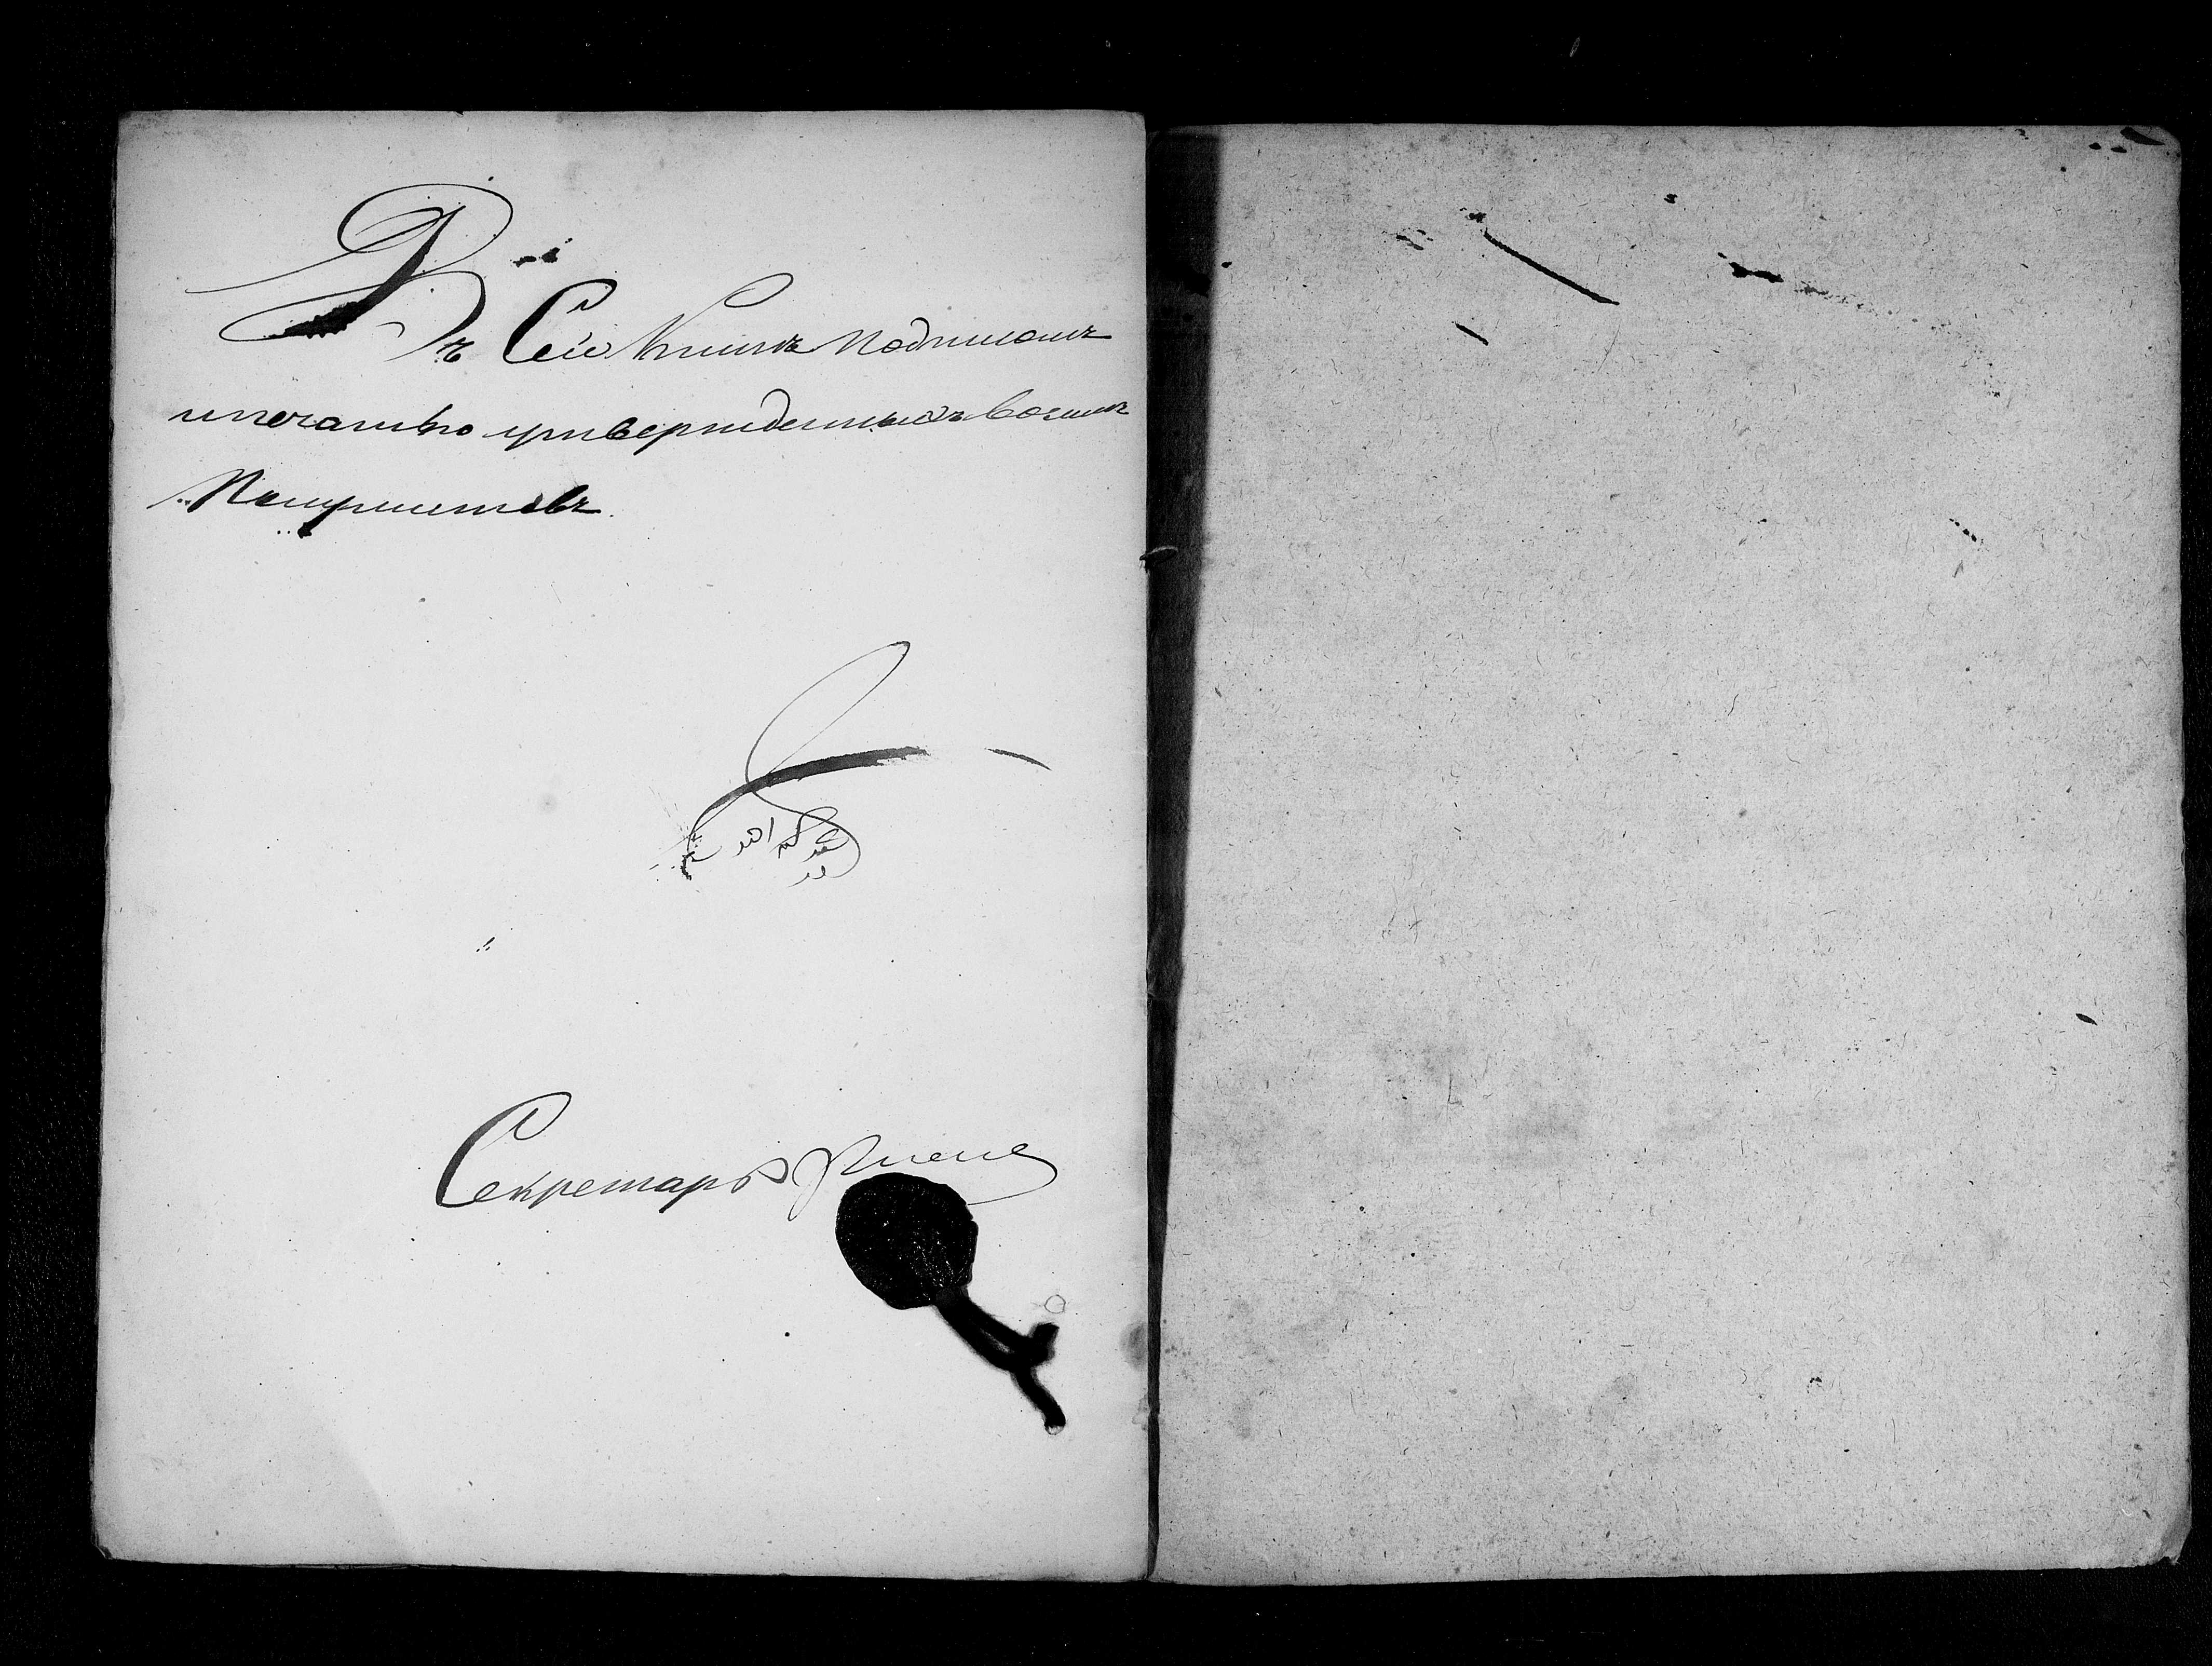 Въ Сей Книгѣ подписомъ
и печатью утвержденныхъ восемь
Полулистовъ.
Секретарь